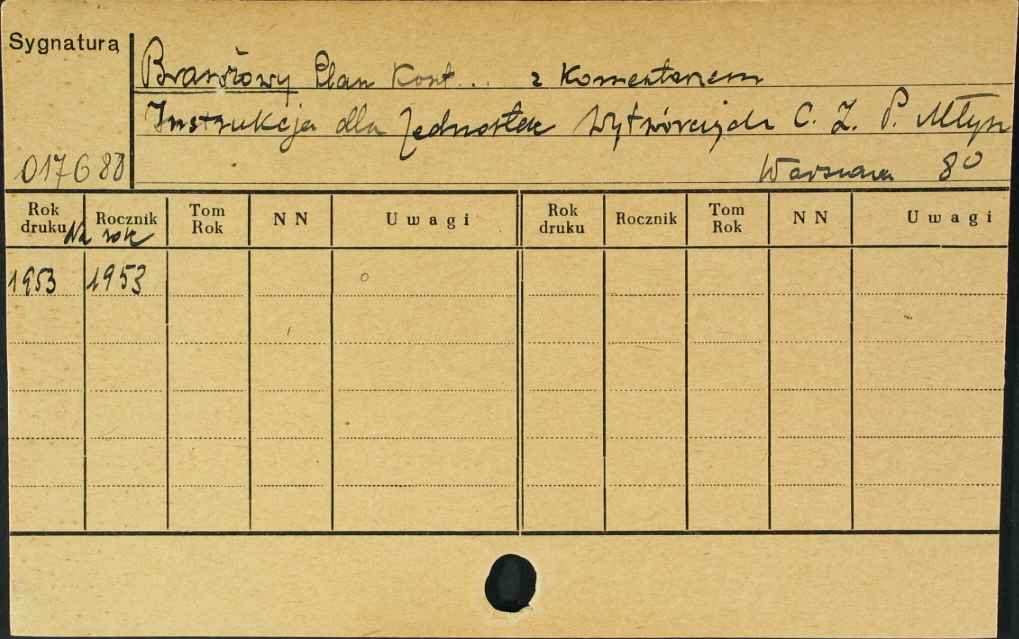 Sygnatura
Branżowy Plan Kont... z Komentarzem
Instrukcja dla Jednostek Wytwórczych C. Z. P. Młyn
017688
Warszawa 80
Rok druku Rocznik Tom Rok NN Uwagi Rok druku Rocznik Tom Rok NN Uwagi
Na rok
1953 1953